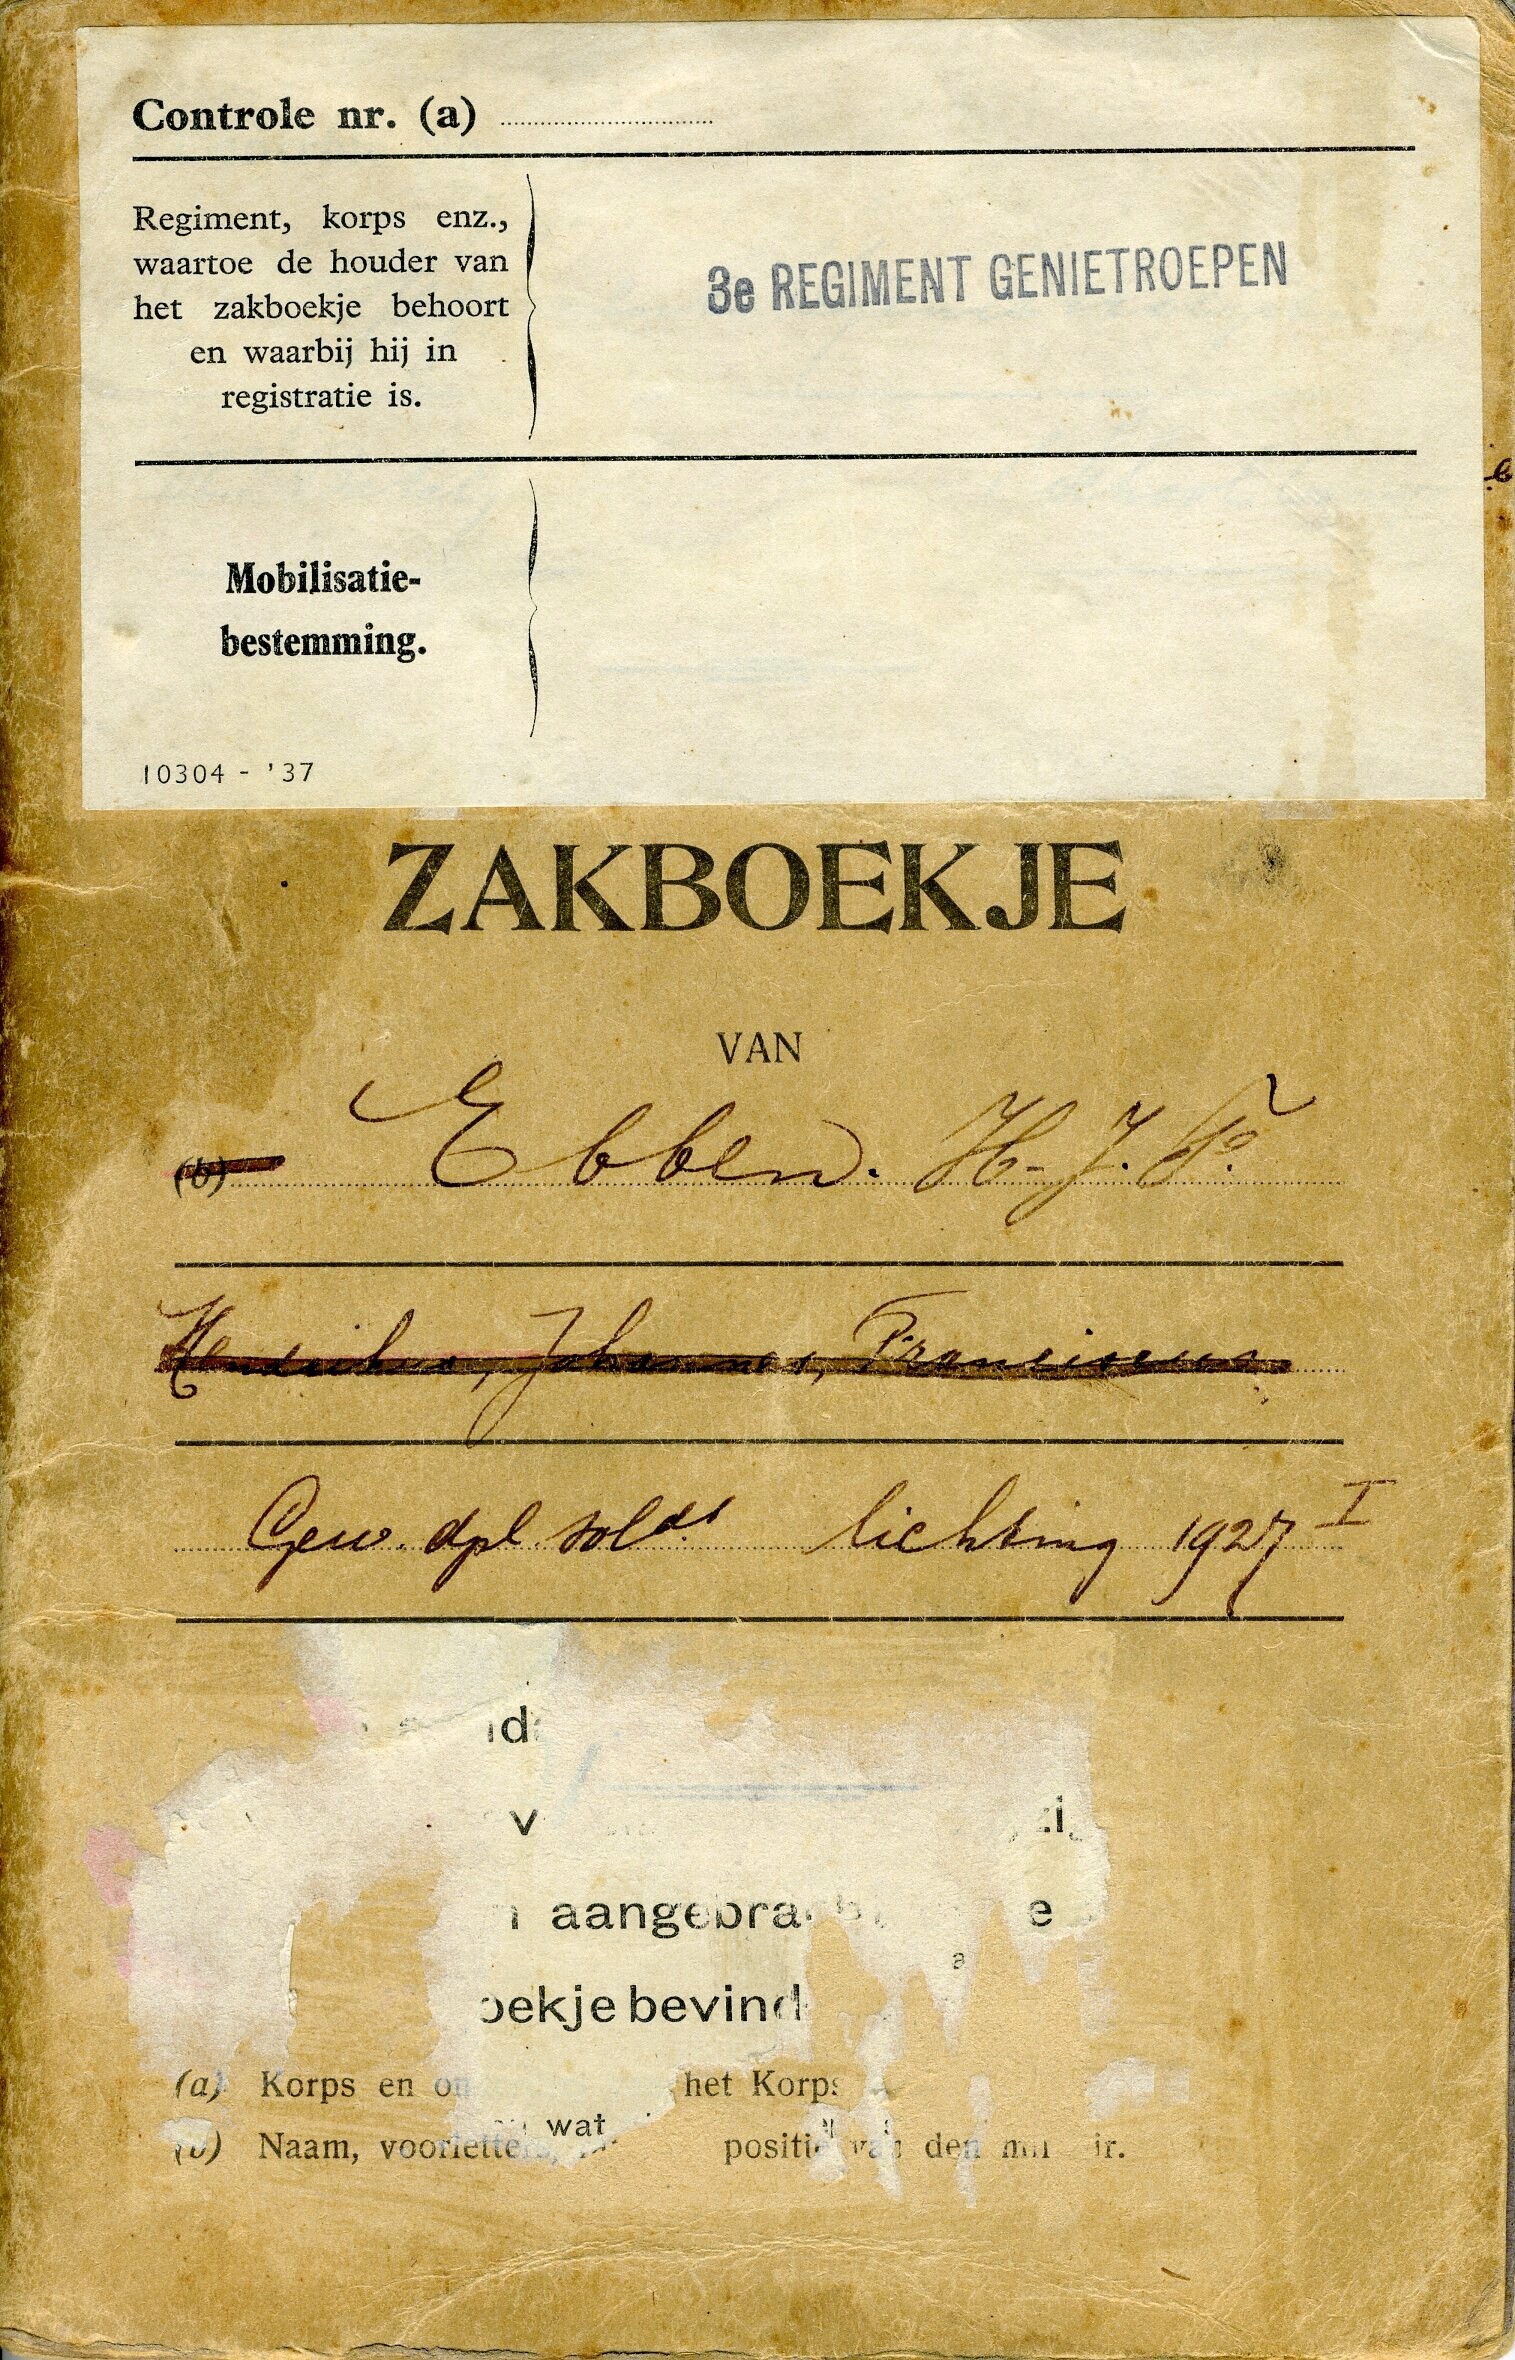 Controle nr. (a)
Regiment, korps enz.,
waartoe de houder van
het zakboekje behoort
en waarbij hij in
registratie is.
3e REGIMENT GENIETROEPEN
Mobilisatie-
bestemming.
10304 - '37
ZAKBOEKJE
VAN
(b) Ebben. H. J. Fs.
Hendrikus, Johannes, Franciscus
Gew. dpl. soldt lichting 1927 I
aangebra
oekje bevind
(a) Korps en het Korps
wat
(b) Naam, voorletters, positie van den